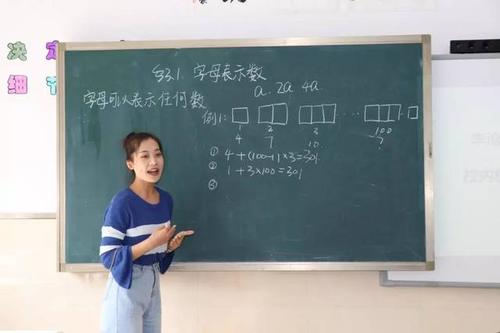 决定
细节
§3.1 字母表示数
a 2a 4a
字母可以表示任何数
例1:
1 2 3 … 100
4 7 10 ?
① 4+(100-1)×3=301
② 1+3×100=301
③